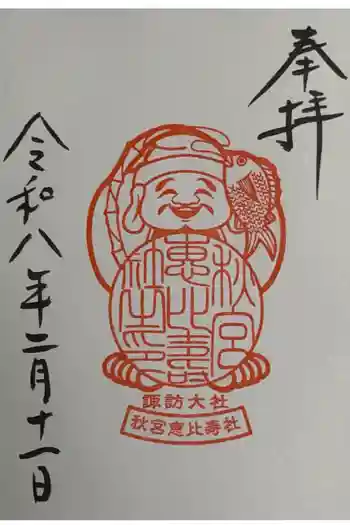 奉拝
秋宮
恵比壽
社之印
諏訪大社
秋宮恵比壽社
令和八年二月十一日